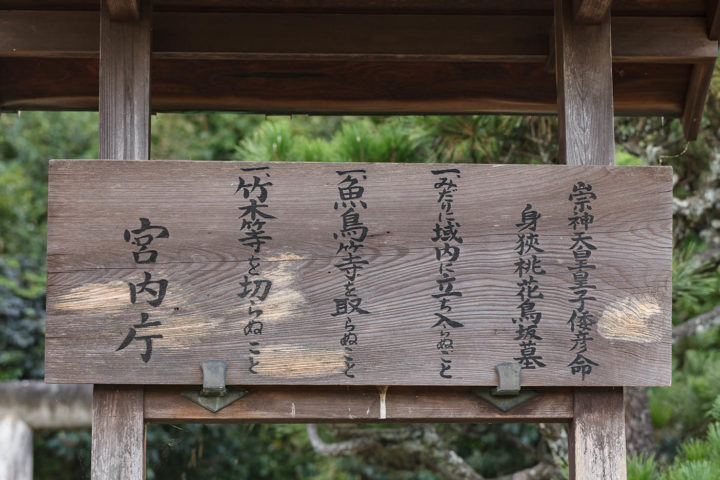 崇神天皇皇子倭彦命
身狹桃花鳥坂墓
一、みだりに域内に立ち入らぬこと
一、魚鳥等を取らぬこと
一、竹木等を切らぬこと
宮内庁